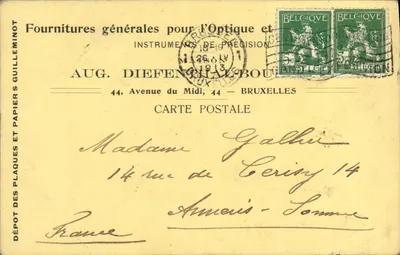 Fournitures générales pour l'Optique et
INSTRUMENTS DE PRÉCISION
AUG. DIEFENTHAL-BOU
44, Avenue du Midi, 44 — BRUXELLES
CARTE POSTALE
Madame Gallier
14 rue de Cerisy 14
Amiens-Somme
France
DÉPOT DES PLAQUES ET PAPIERS GUILLEMINOT
BELGIQUE
BELGIQUE
1913